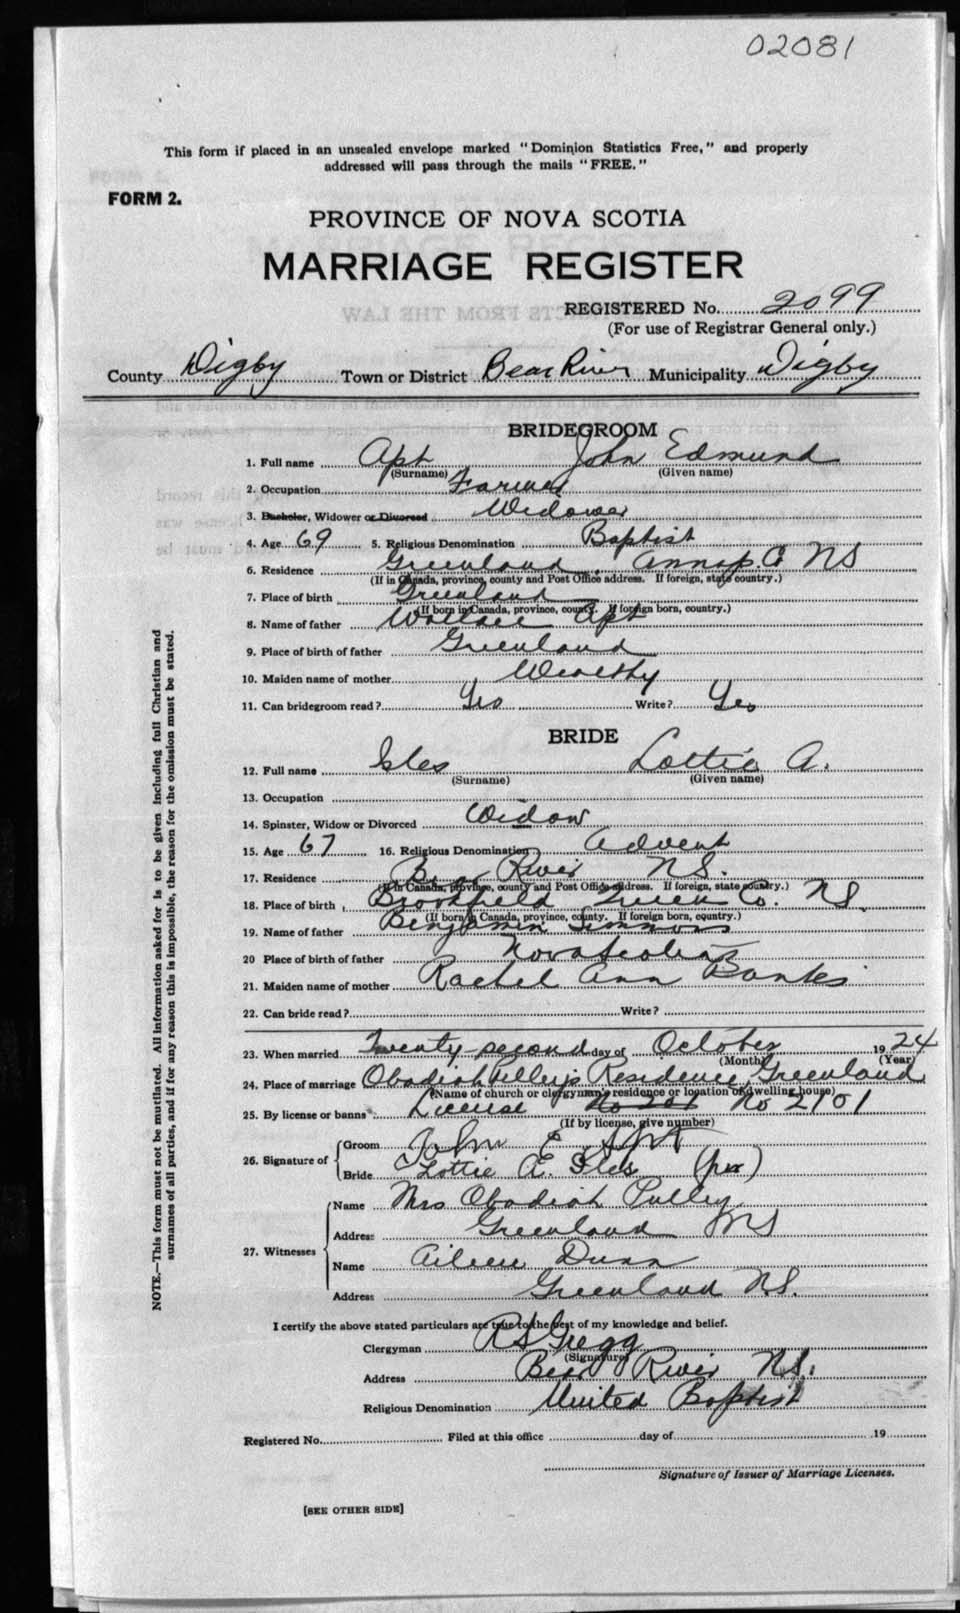 02081
This form if placed in an unsealed envelope marked "Dominion Statistics Free," and properly
addressed will pass through the mails "FREE."
FORM 2.
PROVINCE OF NOVA SCOTIA
MARRIAGE REGISTER
REGISTERED No. 2099
(For use of Registrar General only.)
County Digby Town or District Bear River Municipality Digby
BRIDEGROOM
1. Full name Apt John Edmund
(Surname) (Given name)
2. Occupation Farmer
3. Bachelor, Widower or Divorced Widower
4. Age 69 5. Religious Denomination Baptist
6. Residence Greenland Annap. Co NS
(If in Canada, province, county and Post Office address. If foreign, state country.)
7. Place of birth Greenland
(If born in Canada, province, county. If foreign born, country.)
8. Name of father Wallace Apt
9. Place of birth of father Greenland
10. Maiden name of mother Wealthy
11. Can bridegroom read? Yes Write? Yes
BRIDE
12. Full name Isles Lottie A.
(Surname) (Given name)
13. Occupation
14. Spinster, Widow or Divorced Widow
15. Age 67 16. Religious Denomination Advent
17. Residence Bear River NS.
(If in Canada, province, county and Post Office address. If foreign, state country.)
18. Place of birth Brookfield Queen Co. NS.
(If born in Canada, province, county. If foreign born, country.)
19. Name of father Benjamin Simmons
20 Place of birth of father Nova Scotia
21. Maiden name of mother Rachel Ann Banks
22. Can bride read? Write?
23. When married Twenty-second day of October 1924
(Month) (Year)
24. Place of marriage Obadiah Pulley's Residence, Greenland
(Name of church or clergyman's residence or location of dwelling house)
25. By license or banns License No 2101
(If by license, give number)
26. Signature of Groom John E Apt
Bride Lottie A. Isles (per)
27. Witnesses Name Mrs Obadiah Pulley
Address Greenland NS
Name Aileen Dunn
Address Greenland NS.
I certify the above stated particulars are true to the best of my knowledge and belief.
Clergyman RS Gregg
(Signature)
Address Bear River NS.
Religious Denomination United Baptist
Registered No. Filed at this office day of 19
Signature of Issuer of Marriage Licenses.
[SEE OTHER SIDE]
NOTE.—This form must not be mutilated. All information asked for is to be given including full Christian and
surnames of all parties, and if for any reason this is impossible, the reason for the omission must be stated.